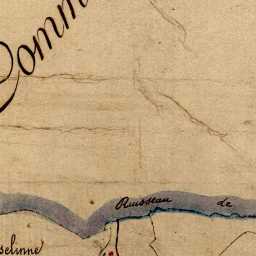 Comm
Ruisseau de
selinne